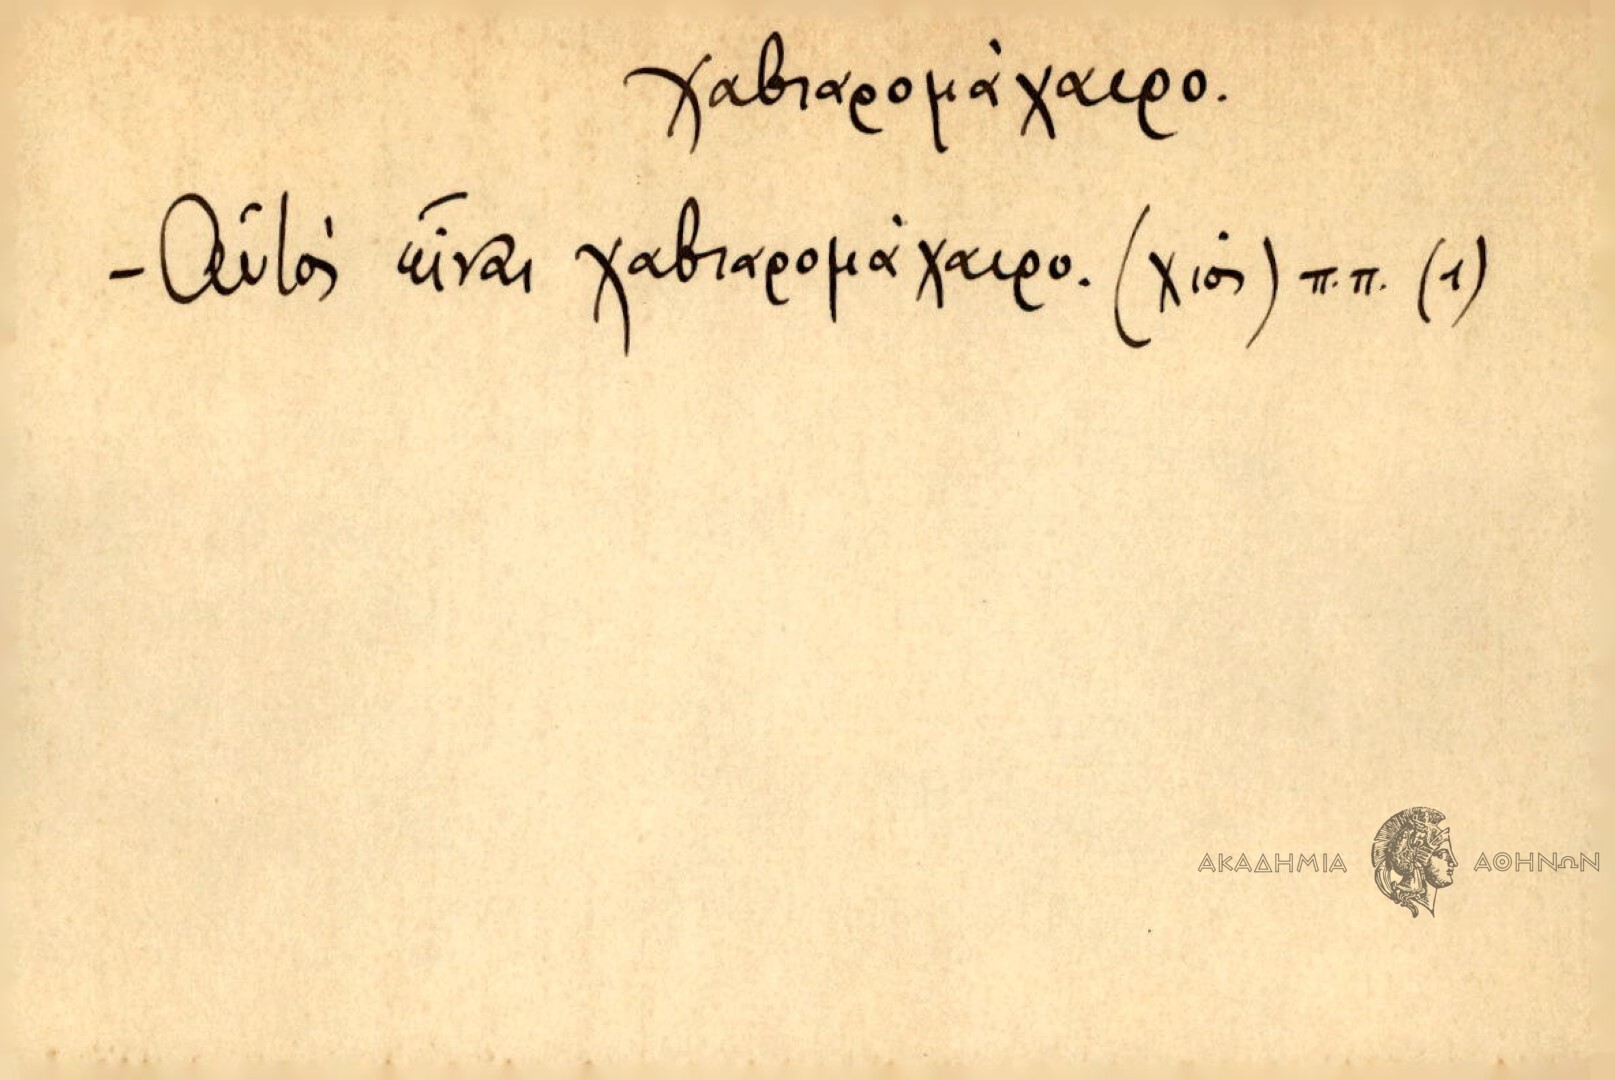 χαβιαρομάχαιρο.
- Αὐτός εἶναι χαβιαρομάχαιρο. (χιός) π.π. (1)
ΑΚΑΔΗΜΙΑ ΑΘΗΝΩΝ